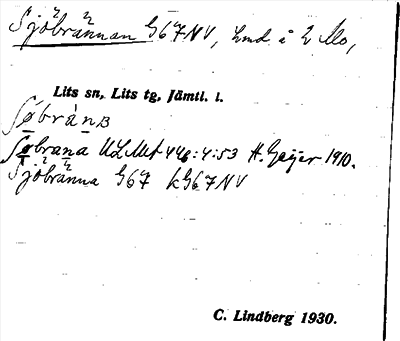 Sjöbrännan G67NV, hmd i 2 Mo,
Lits sn, Lits tg, Jämtl. l.
ʃøbrànʙ
ʃøbrana ULMA 44b:4:53 H. Geijer 1910.
Sjöbränna G67 kG67NV
C. Lindberg 1930.